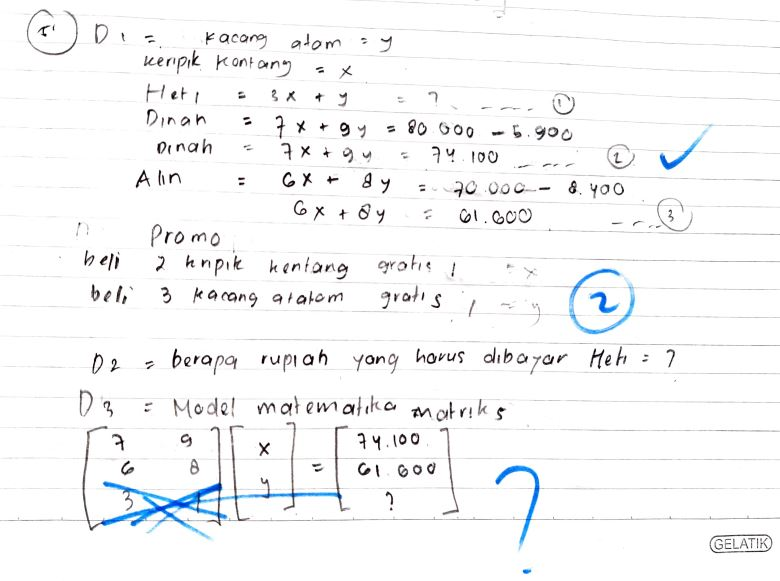 5. D1 = kacang atom = y
keripik kentang = x
Heti = 3x + y = ? ---- 1
Dinah = 7x + 9y = 80.000 - 5.900
Dinah = 7x + 9y = 74.100 ---- 2
Alin = 6x + 8y = 70.000 - 8.400
6x + 8y = 61.600 ---- 3
Promo
beli 2 kripik kentang gratis 1 = x
beli 3 kacang gratis 1 = y
2
D2 = berapa rupiah yang harus dibayar Heti = ?
D3 = Model matematika matriks
[7 9] [x] = [74.100]
[6 8] [y] [61.600]
[3 1] [?]
?
GELATIK